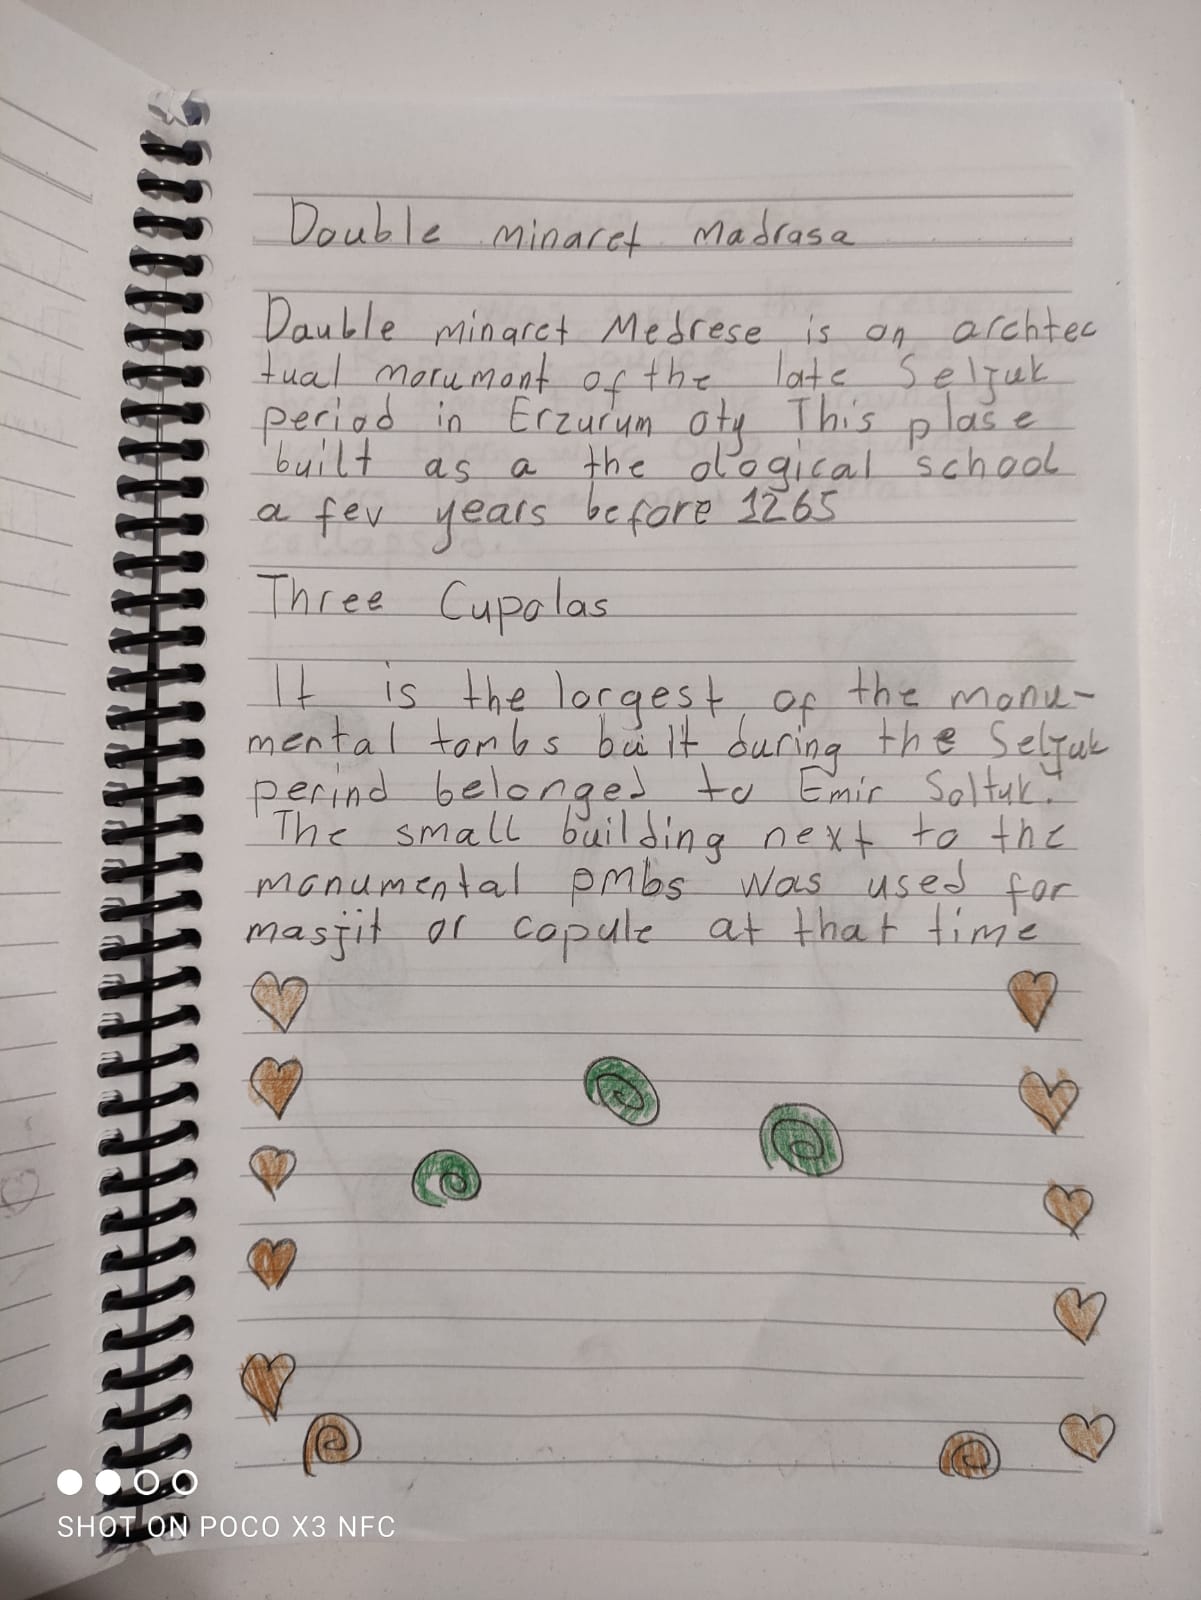 Double minaret Madrasa
Dauble minaret Medrese is an archtec
tual morumont of the late Seljuk
period in Erzurum oty This plase
built as a the ological school
a fev years before 1265
Three Cupolas
It is the largest of the monu-
mental tombs built during the Seljuk
perind belonged to Emir Saltuk.
The small building next to the
monumental pmbs was used for
masjit or capule at that time
SHOT ON POCO X3 NFC